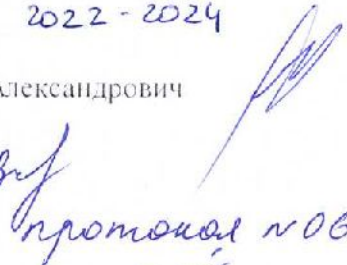 2022 - 2024
Александрович
протокол №06